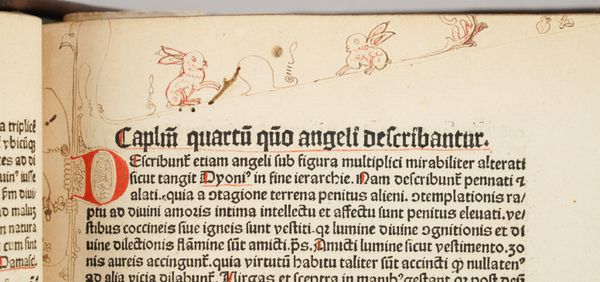 a triplicē
ꝛ vbicūqꝫ
tes ad di
uinꝰ iusse
p̄m diui/
ad malas
n natura
e cum sint
Damasc̄.
Caplm̄ quartū quō angeli describantur.
DEscribunt᷑ etiam angeli sub figura multiplici mirabiliter alterati
sicut tangit Dyoniꝰ in fine ierarchie. Nam describunt᷑ pennati ⁊
alati. quia a ↄtagione terrena penitus alieni. ↄtemplationis ra/
ptu ad diuini amoris intima intellectu et affectu sunt penitus eleuati. ve/
stibus coccineis siue igneis sunt vestiti. qꝛ lumine diuine ↄgnitionis et di
uine dilectionis flāmine sūt amicti. p̄s. Amicti lumine sicut vestimento. zo
nis aureis accingunt᷑. quia virtutū habitu taliter sūt accincti ꝙ nullatenꝰ
ad alia vicia dilabunt᷑. Virgas et sceptra in manibꝰ gestant᷑ qꝛ post deū